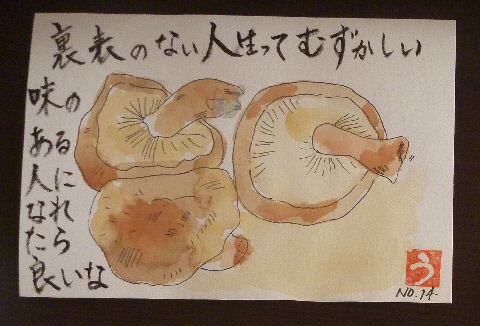 裏表のない人生ってむずかしい
味の
ある
人に
なれ
たら
良いな
う
NO.14.